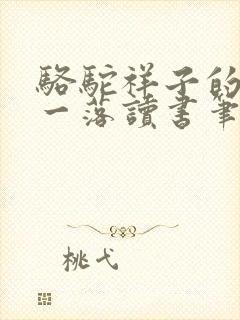 駱駝祥子的
一落讀書筆
桃弋